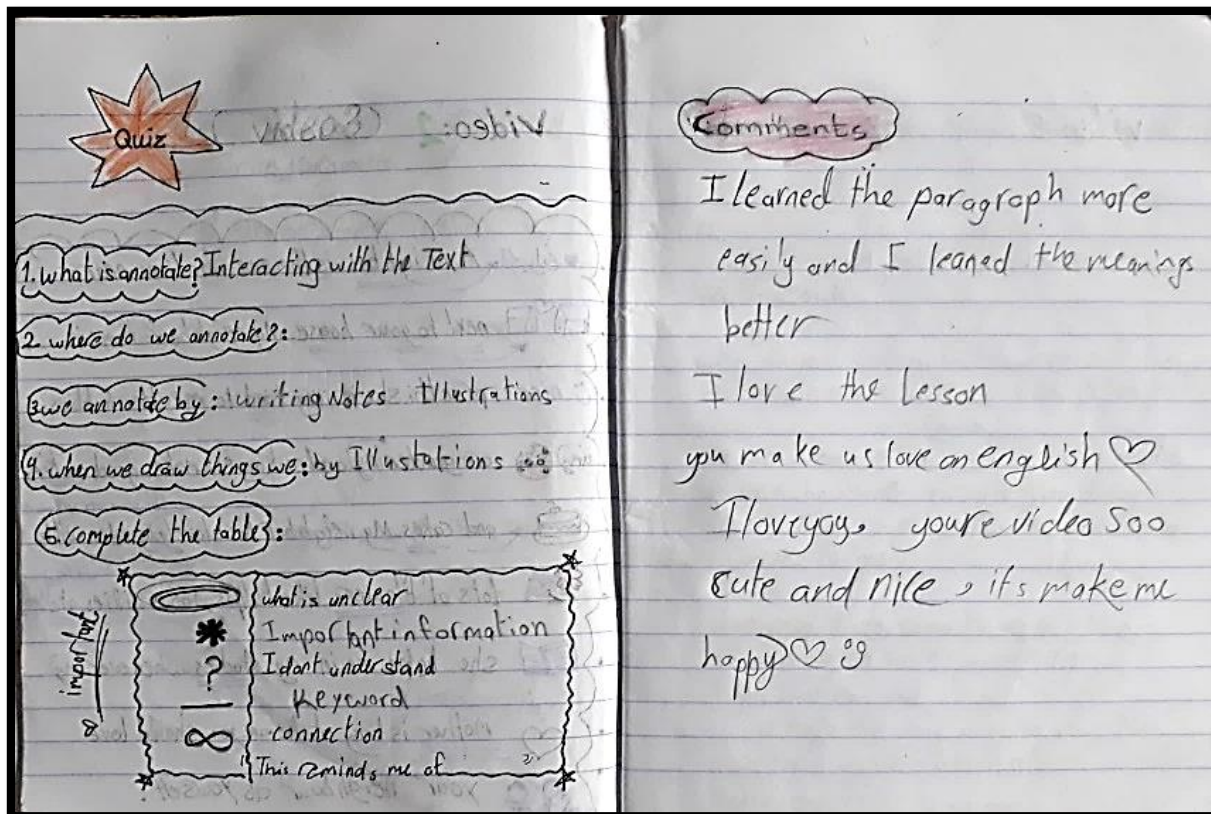 Quiz
video 3
Video: 2
1. what is annotate? Interacting with the Text
2. where do we annotate?:
3. we annotate by: writing Notes Illustrations
4. when we draw things we: by Illustations
5. complete the table:
what is unclear
* Important information
? I dont understand
Keyword
∞ connection
This reminds me of
important
Comments
I learned the paragraph more
easily and I leaned the meanings
better
I love the Lesson
you make us love an english ♡
I love you, youre video Soo
cute and nice, its make me
happy ♡